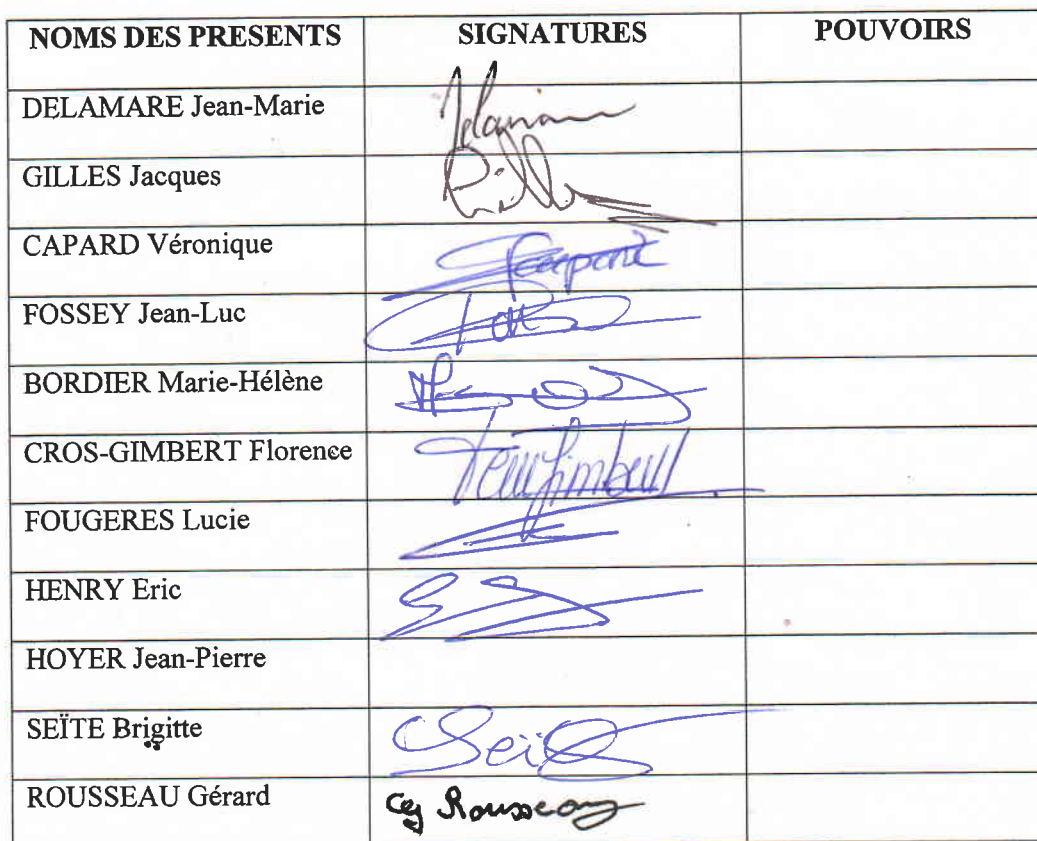 NOMS DES PRESENTS SIGNATURES POUVOIRS
DELAMARE Jean-Marie
GILLES Jacques
CAPARD Véronique
FOSSEY Jean-Luc
BORDIER Marie-Hélène
CROS-GIMBERT Florence
FOUGERES Lucie
HENRY Eric
HOYER Jean-Pierre
SEÏTE Brigitte Seïte
ROUSSEAU Gérard G Rousseau